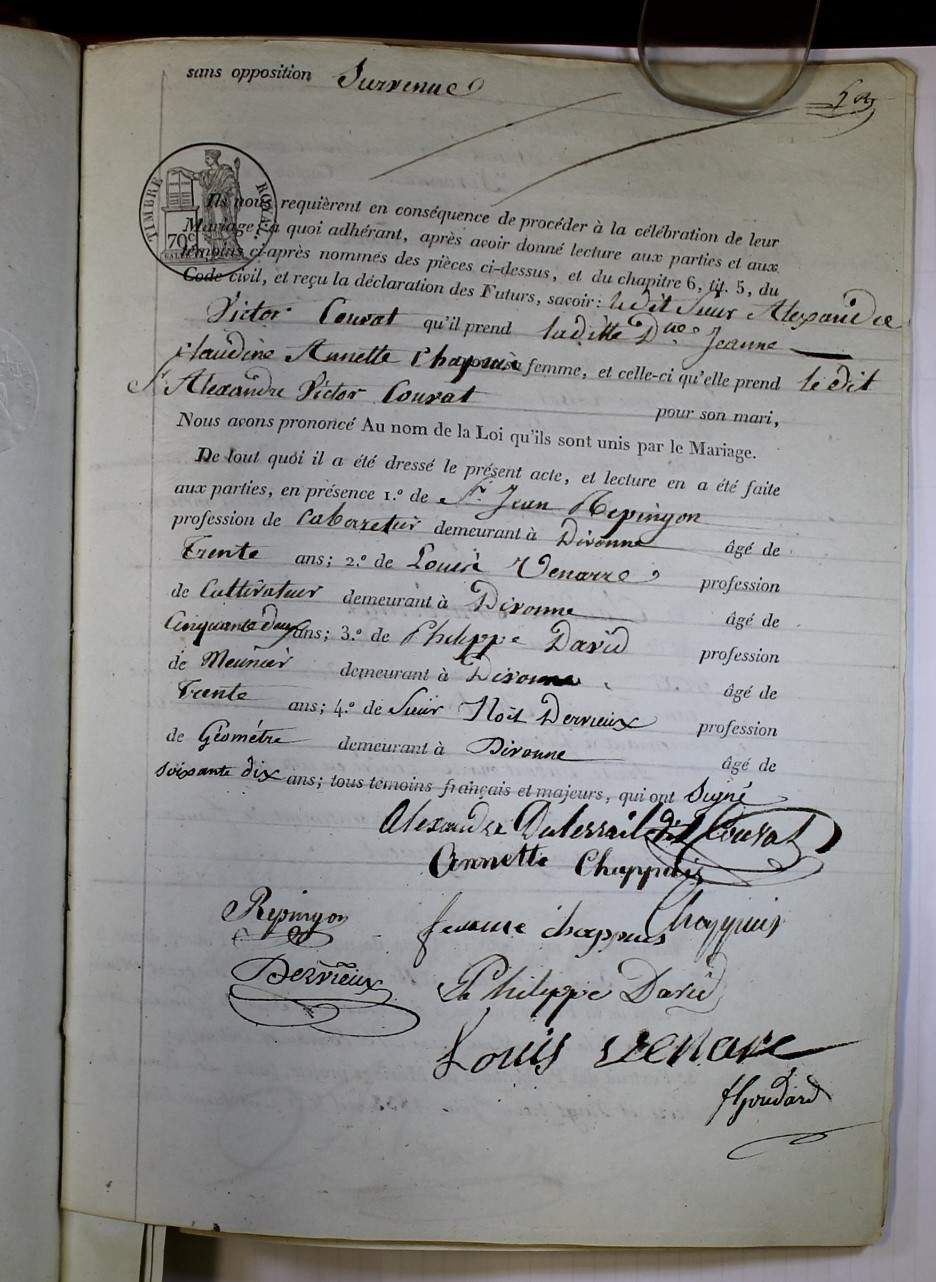 sans opposition Survenue
TIMBRE ROYAL
70c
Ils nous requièrent en conséquence de procéder à la célébration de leur
Mariage, à quoi adhérant, après avoir donné lecture aux parties et aux
témoins ci-après nommés des pièces ci-dessus, et du chapitre 6, tit. 5, du
Code civil, et reçu la déclaration des Futurs, savoir : le dit Sieur Alexandre
Victor Couvat qu'il prend laditte Dlle Jeanne
Claudine Annette Chapuis femme, et celle-ci qu'elle prend le dit
Sr Alexandre Victor Couvat pour son mari,
Nous avons prononcé Au nom de la Loi qu'ils sont unis par le Mariage.
De tout quoi il a été dressé le présent acte, et lecture en a été faite
aux parties, en présence 1.º de Sr Jean Repingon
profession de Cabaretier demeurant à Divonne âgé de
Trente ans ; 2.º de Louis Venarre profession
de Cultivateur demeurant à Divonne âgé de
Cinquante deux ans ; 3.º de Philippe David profession
de Meunier demeurant à Divonne âgé de
Trente ans ; 4.º de Sieur Noël Dervieux profession
de Géométre demeurant à Divonne âgé de
soixante dix ans ; tous témoins français et majeurs, qui ont Signé
Alexandre dit Couvat
Annette Chappuis
Repingon femme chappuis Chappuis
Dervieux Philippe David
Louis venare
Goudard